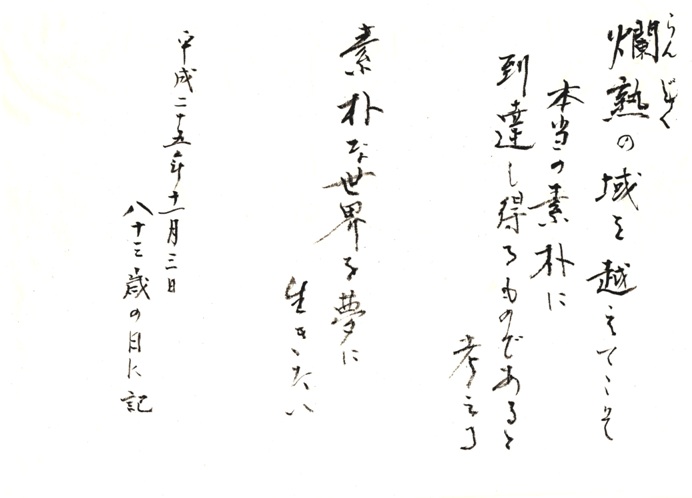 爛熟の域を越えてこそ
らんじゅく
本当の素朴に
到達し得るものであると
考える
素朴な世界を夢に
生きたい
平成二十五年十一月三日
八十三歳の日に記